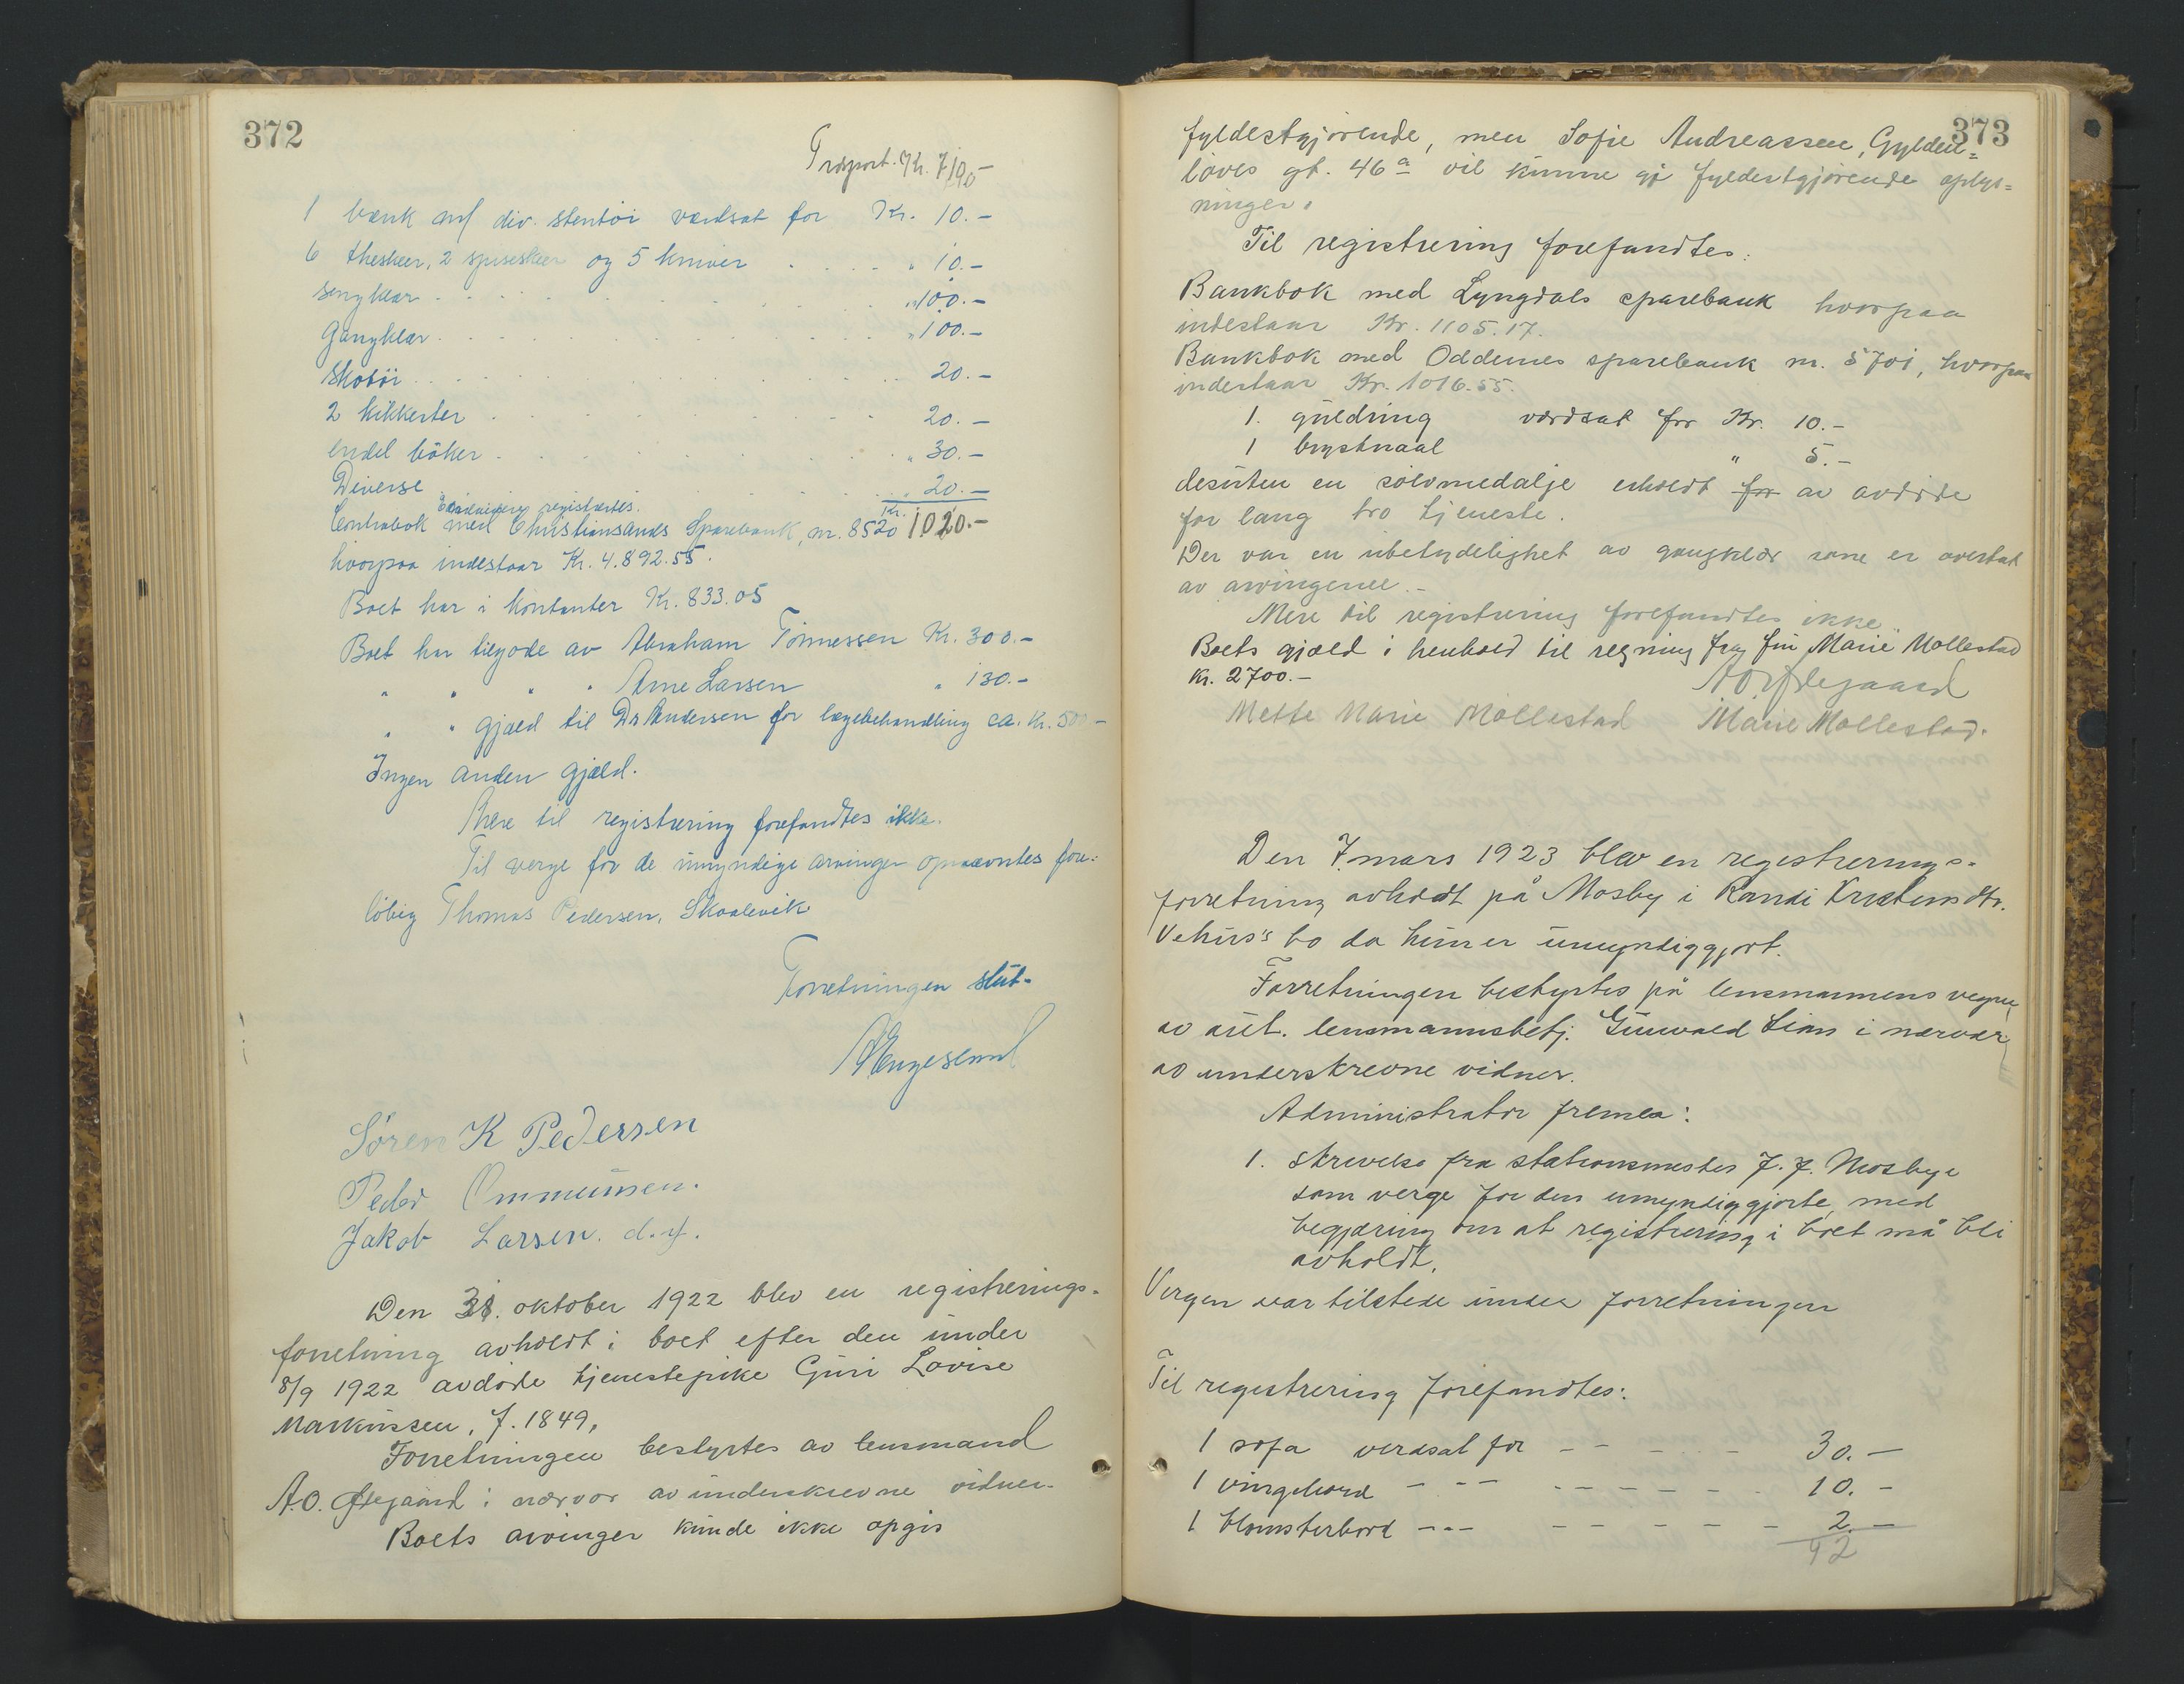 372
Trsport. Kr. 710-
1 bænk m/ div. stentöi verdsat for Kr. 10.-
6 theskeer, 2 spiseskeer og 5 kniver . . . . " 10.-
Sengklær . . . . . . . . . . " 100.-
Gangklær . . . . . . . . . . " 100.-
Skotöi . . . . . . . . . . 20.-
2 kikkerter . . . . . . . . . 20.-
endel böker . . . . . . . . . " 30.-
Diverse . . . . . . . . " 20.-
registrertes. Kr. 1020.-
Contrabok med Christiansands Sparebank, nr. 8520
hvorpaa indestaar Kr. 4.892.55.
Boet har i kontanter Kr. 833.05
Boet har tilgode av Abraham Tönnessen Kr. 300.-
" " " " Arne Larsen " 130.-
" " gjæld til Dr Andersen for lægebehandling ca. Kr. 500-
Ingen anden gjæld.
Mere til registrering forefandtes ikke.
Til verge for de umyndige arvinger opnævntes fore-
löbig Thomas Pedersen, Skaalevik
Forretningen slut.
Sören K Pedersen
Peder Ommunsen.
Jakob Larsen. d.y.
Den 31. oktober 1922 blev en registrerings-
forretning avholdt i boet efter den under
8/9 1922 avdöde tjenestepike Guri Lovise
Markussen, f. 1849,
Forretningen bestyrtes av lensmand
A.O. Ødegaard i nærvær av underskrevne vidner.
Boets arvinger kunde ikke opgis
373
fyldestgjörende, men Sofie Andreassen, Gylden=
löves gt. 46a vil kunne gi fyldestgjörende oplys=
ninger.
Til registrering forefandtes:
Bankbok med Lyngdals sparebank hvorpaa
indestaar Kr. 1105.17.
Bankbok med Oddernes sparebank nr. 5701, hvorpaa
indestaar Kr. 1016.55.
1. guldring værdsat for Kr. 10.-
1 brystnaal " 5.-
desuten en sölvmedalje erholdt for av avdöde
for lang tro tjeneste.
Der var en ubetydelighet av gangklær som er overtat
av arvingene.-
Mere til registrering forefandtes ikke.
Boets gjæld i henhold til regning fra frk Marie Mollestad
Kr. 2700.-
A O Ødegaard
Mette Marie Mollestad Marie Mollestad.
Den 7. mars 1923 blev en registrerings-
forretning avholdt på Mosby i Randi Kristensdtr.
Vehus's bo da hun er umyndiggjort.
Forretningen bestyrtes på lensmannens vegne
av aut. lensmannsbetj. Gunvald Lian i nærvær
av underskrevne vidner.
Administrator fremla:
1. Skrivelse fra stationsmester J. J. Mosby
som verge for den umyndiggjorte, med
begjæring om at registrering i boet må bli
avholdt.
Vergen var tilstede under forretningen
Til registrering forefandtes:
1 sofa verdsat for - - - - - 30.-
1 vingebord - - - - - - - - 10.-
1 blomsterbord - - - - - - - - 2.-
42